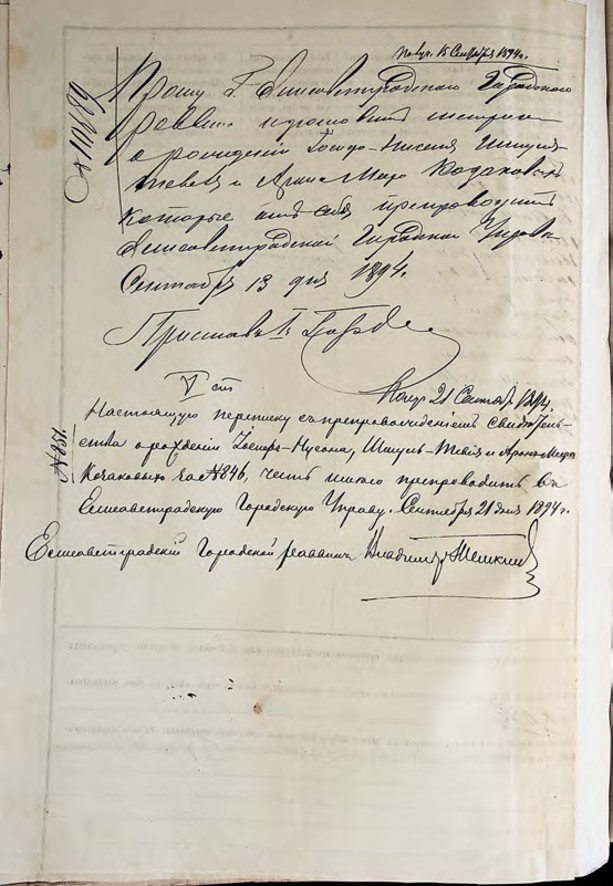 Получ. 15 Сентября 1894 г.
№ 10689
Прошу Г. Елисаветградского Городского
раввина
о рождении Иосифа-Нисена Шмуля-
Тевеля и Арона Мера Козаковыхъ
которые препроводить
Елисаветградской Городской Управе
Сентября 13 дня 1894 г.
Приставъ
V ст
Получ. 21 Сентяб. 1894.
№ 851.
Настоящую переписку съ препровождениемъ свидетель-
ства о рождении Иосифа-Нусона, Шмуль-Тевія и Арона-Меера
Козаковыхъ за № 846, честь имею препроводить въ
Елисаветградскую Городскую Управу. Сентября 21 дня 1894 г.
Елисаветградскій Городской раввинъ Владимиръ